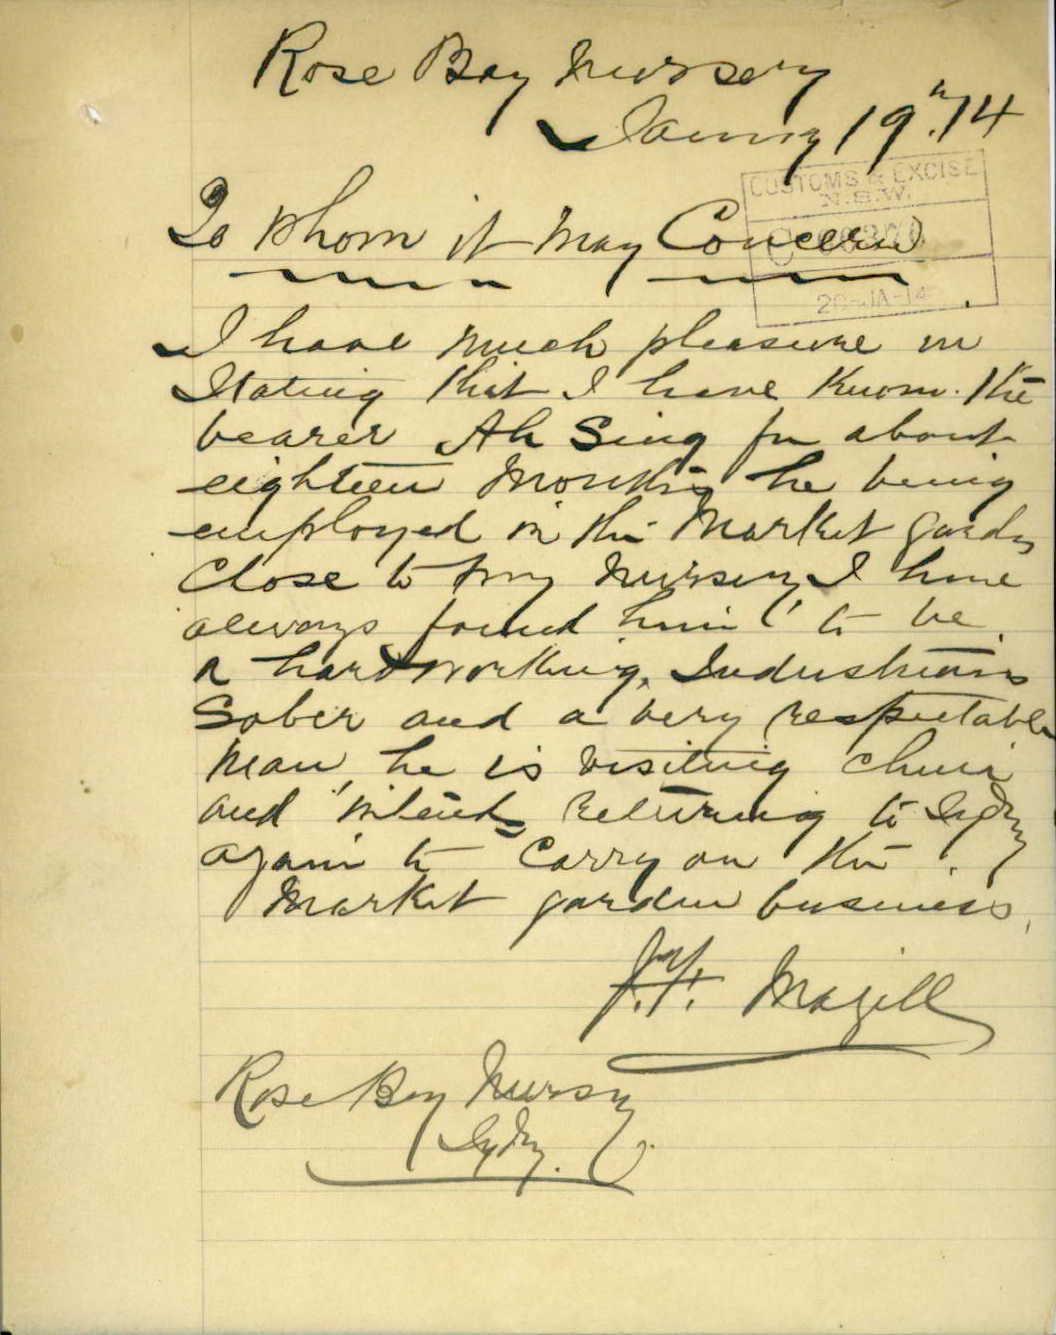 Rose Bay Nursery
January 19th 14
CUSTOMS & EXCISE
N.S.W.
C
20-JA-14
To Whom it May Concern
I have much pleasure in
Stating that I have Known the
bearer Ah Sing for about
eighteen Months he being
employed in the Market garden
Close to my Nursery, I have
always found him to be
a hard working, Industrious
Sober and a very respectable
Man, he is visiting China
and intends returning to Sydney
again to Carry on the
Market garden business.
Magill
Rose Bay Nursery
Sydney.